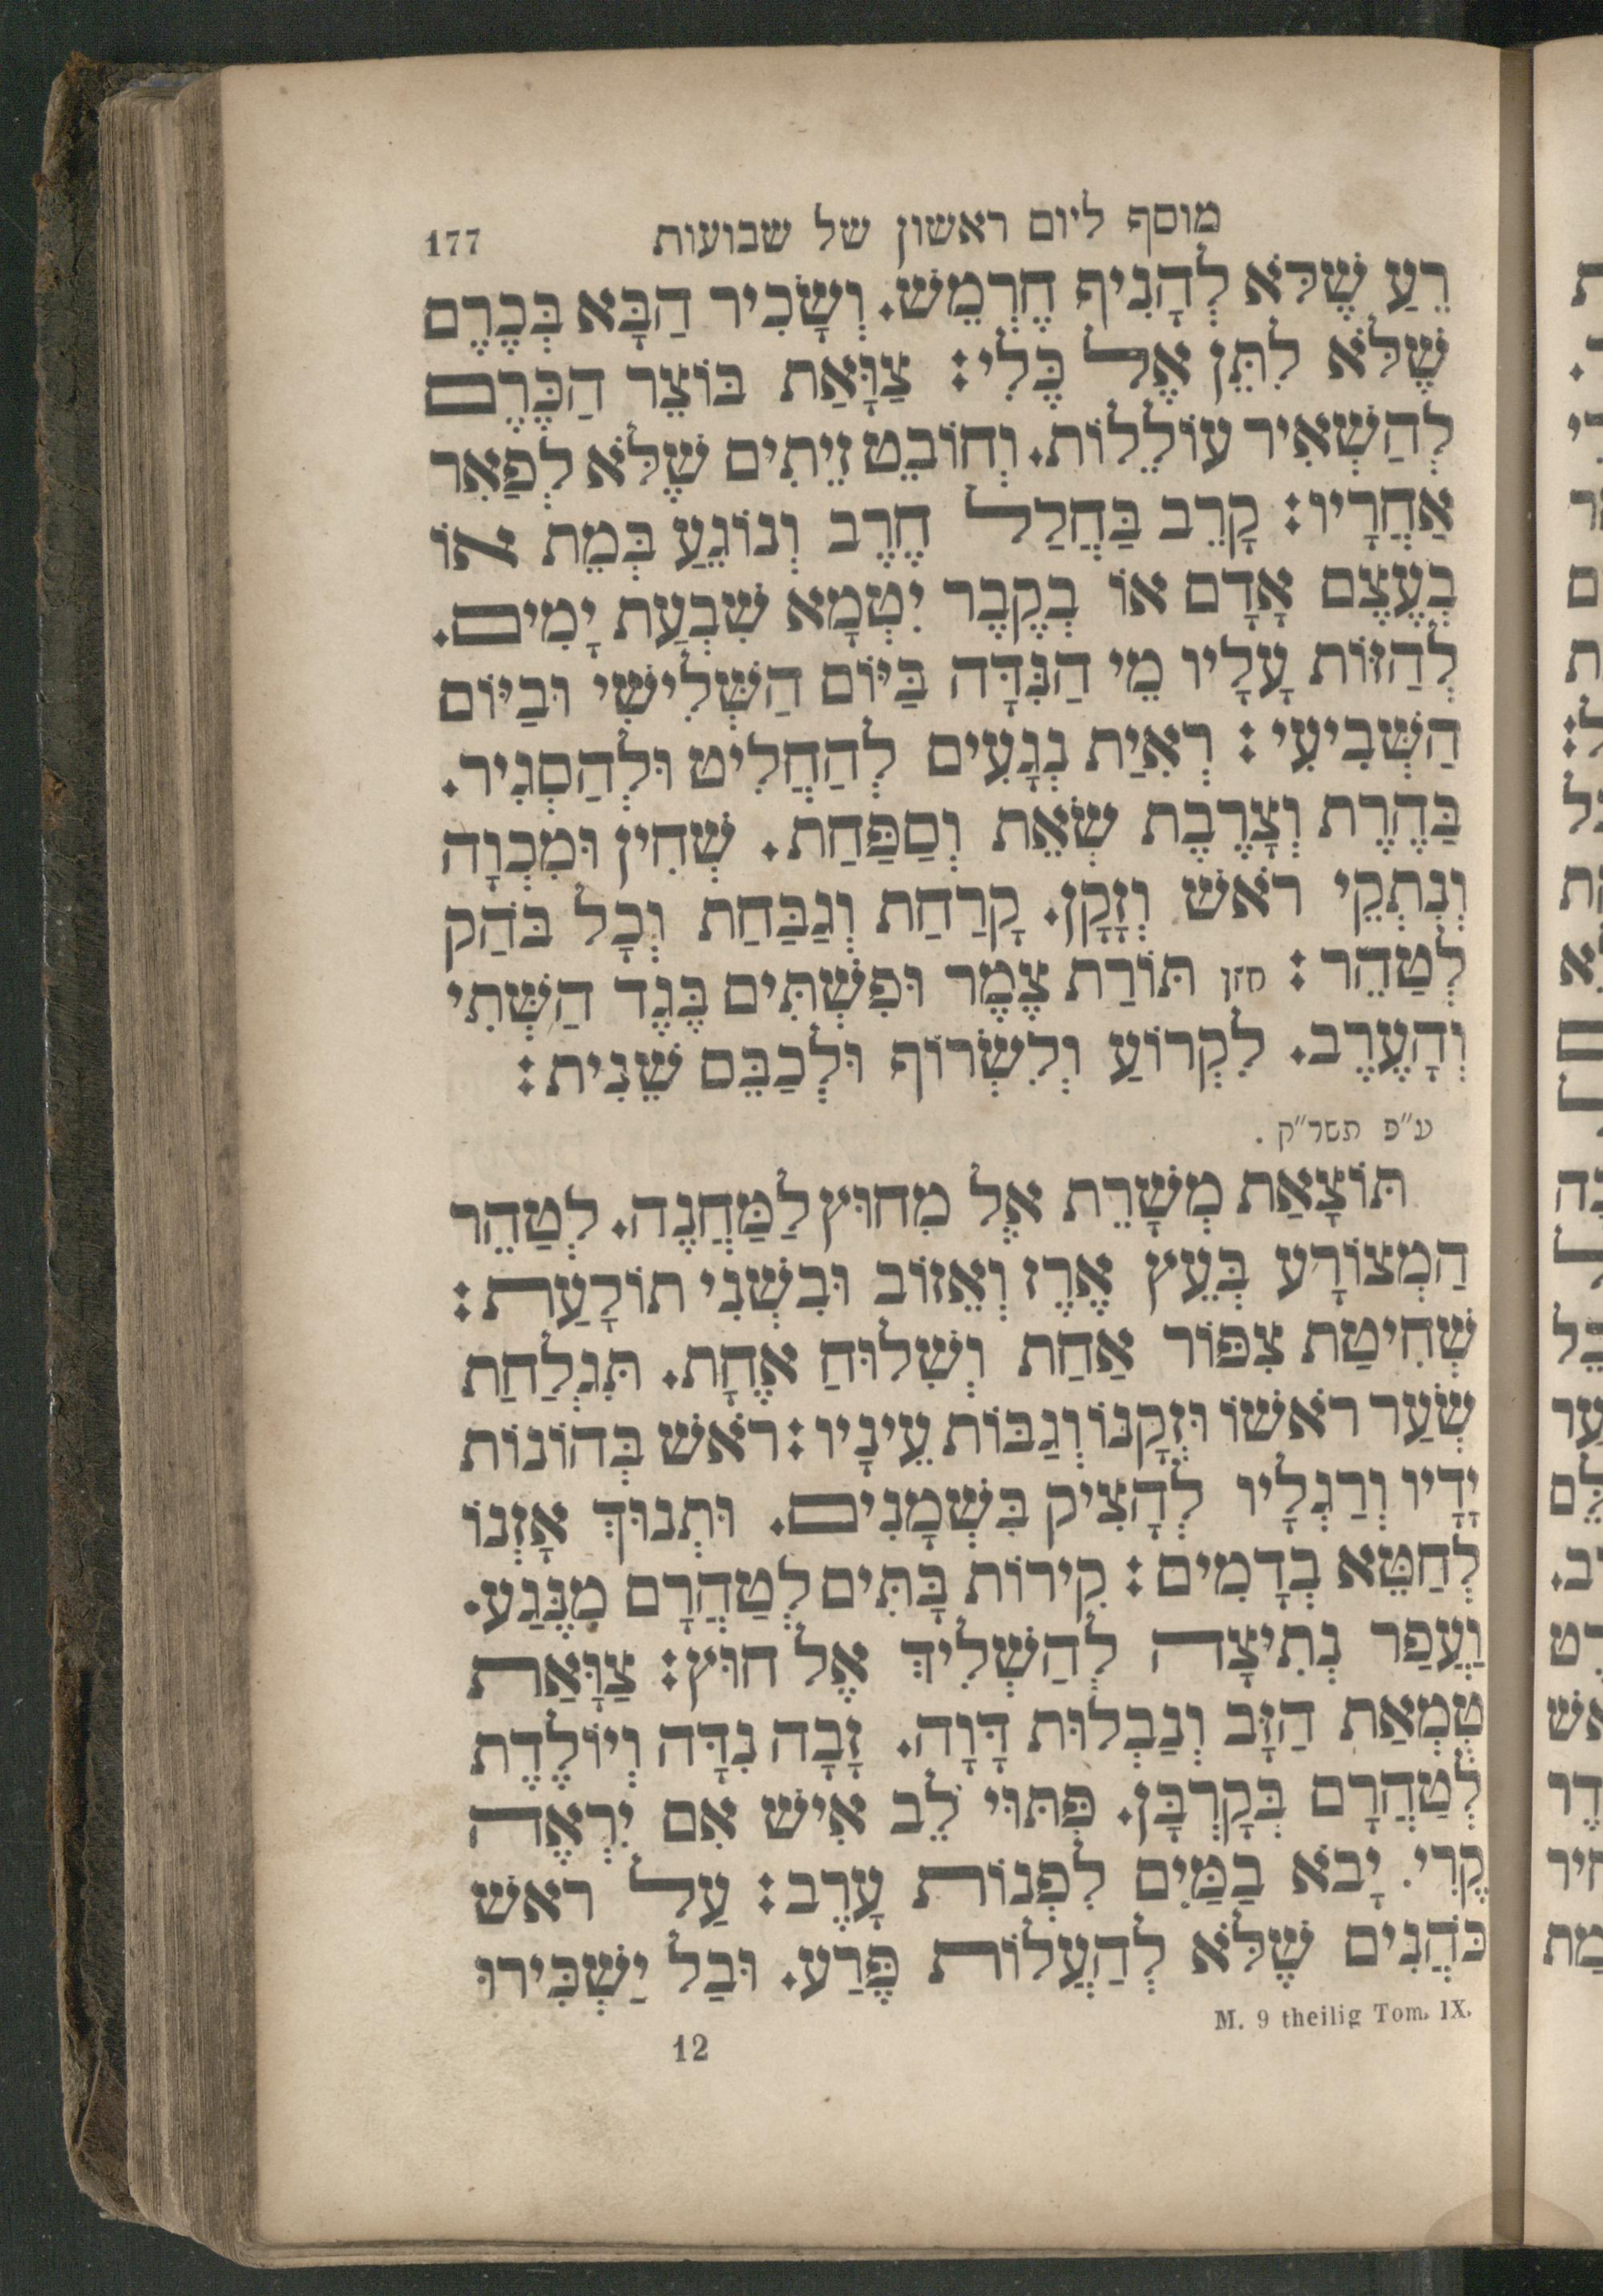 מוסף ליום ראשון של שבועות 177
רֵעַ שֶׁלֹּא לְהָנִיף חֶרְמֵשׁ. וְשָׂכִיר הַבָּא בְּכֶרֶם
שֶׁלֹּא לִתֵּן אֶל כֶּלִי: צַוָּאַת בּוֹצֵר הַכֶּרֶם
לְהַשְׁאִיר עוֹלֵלוֹת. וְחוֹבֵט זֵיתִים שֶׁלֹּא לְפַאֵר
אַחֲרָיו: קָרֵב בַּחֲלַל חֶרֶב וְנוֹגֵעַ בְּמֵת אוֹ
בְעֶצֶם אָדָם אוֹ בְקֶבֶר יִטְמָא שִׁבְעַת יָמִים.
לְהַזּוֹת עָלָיו מֵי הַנִּדָּה בַּיּוֹם הַשְּׁלִישִׁי וּבַיּוֹם
הַשְּׁבִיעִי: רְאִיַת נְגָעִים לְהַחֲלִיט וּלְהַסְגִּיר.
בַּהֶרֶת וְצָרֶבֶת שְׂאֵת וְסַפַּחַת. שְׁחִין וּמִכְוָה
וְנִתְקֵי רֹאשׁ וְזָקָן. קָרַחַת וְגַבַּחַת וְכָל בֹּהַק
לְטַהֵר: חזן תּוֹרַת צֶמֶר וּפִשְׁתִּים בֶּגֶד הַשְּׁתִי
וְהָעֶרֶב. לִקְרוֹעַ וְלִשְׂרוֹף וּלְכַבֵּס שֵׁנִית:
ע"פ תשר"ק.
תּוֹצָאַת מְשָׁרֵת אֶל מִחוּץ לַמַּחֲנֶה. לְטַהֵר
הַמְצוֹרָע בְּעֵץ אֶרֶז וְאֵזוֹב וּבִשְׁנִי תוֹלָעַת:
שְׁחִיטַת צִפּוֹר אַחַת וְשִׁלּוּחַ אֶחָת. תִּגְלַחַת
שְׂעַר רֹאשׁוֹ וּזְקָנוֹ וְגַבּוֹת עֵינָיו: רֹאשׁ בְּהוֹנוֹת
יָדָיו וְרַגְלָיו לְהָצִיק בִּשְׁמָנִים. וּתְנוּךְ אָזְנוֹ
לְחַטֵּא בְדָמִים: קִירוֹת בָּתִּים לְטַהֲרָם מִנֶּגַע.
וַעֲפַר נְתִיצָה לְהַשְׁלִיךְ אֶל חוּץ: צַוָּאַת
טֻמְאַת הַזָּב וְנַבְלוּת דָּוָה. זָבָה נִדָּה וְיוֹלֶדֶת
לְטַהֲרָם בְּקָרְבָּן. פִּתּוּי לֵב אִישׁ אִם יִרְאֶה
קֶרִי. יָבֹא בַמַּיִם לִפְנוֹת עָרֶב: עַל רֹאשׁ
כֹּהֲנִים שֶׁלֹּא לְהַעֲלוֹת פֶּרַע. וּבַל יַשְׁכִּירוּ
M. 9 theilig Tom. IX.
12